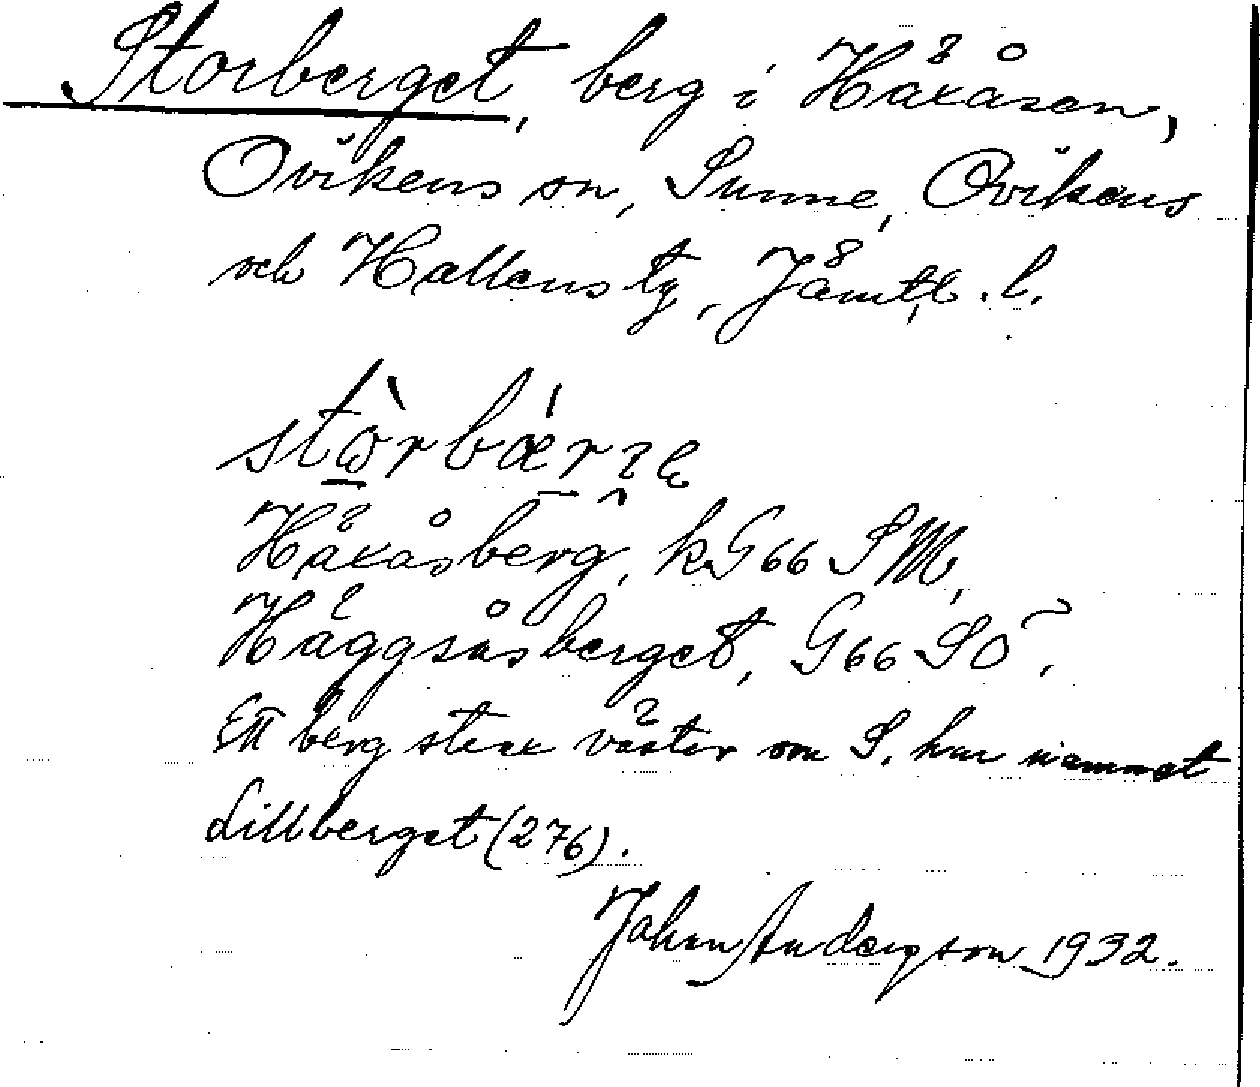 Storberget, berg i Häxåsen,
Ovikens sn, Sunne, Ovikens
och Hallens tg, Jämtl. l.
stɷ̀rbǽrʒɛ
Häxåsberg, k. G66 SM,
Häggsåsberget, G66 SO.
Ett berg strax väster om S. har namnet
Lillberget (276).
Johan Anderson 1932.